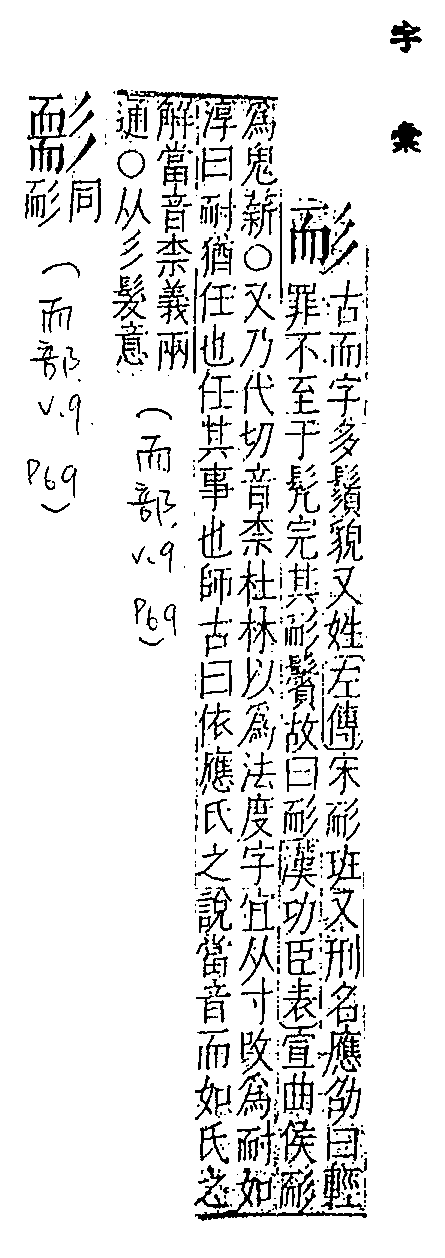 字彙
耏古而字多鬚貌又姓左傳宋耏班又刑名應劭曰輕
罪不至于髡完其耏鬢故曰耏漢功臣表宣曲侯耏
為鬼薪○又乃代切音柰杜林以為法度字宜从寸改為耐如
淳曰耐猶任也任其事也師古曰依應氏之說當音而如氏之
解當音柰義兩
通○从彡髮意
(而部 v.9 P69)
同耏
(而部 v.9 P69)